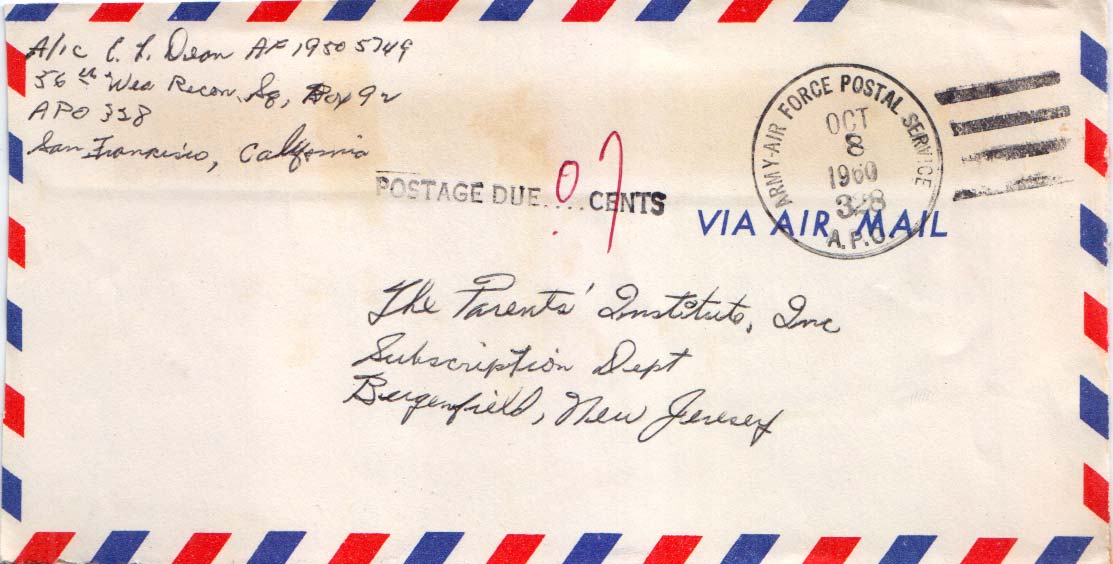 A/1c C. L. Dean AF 19505749
56th Wea Recon Sq, Box 92
APO 328
San Francisco, California
POSTAGE DUE....CENTS
07
ARMY-AIR FORCE POSTAL SERVICE
OCT
8
1960
328
A.P.O.
VIA AIR MAIL
The Parents' Institute, Inc
Subscription Dept
Bergenfield, New Jersey